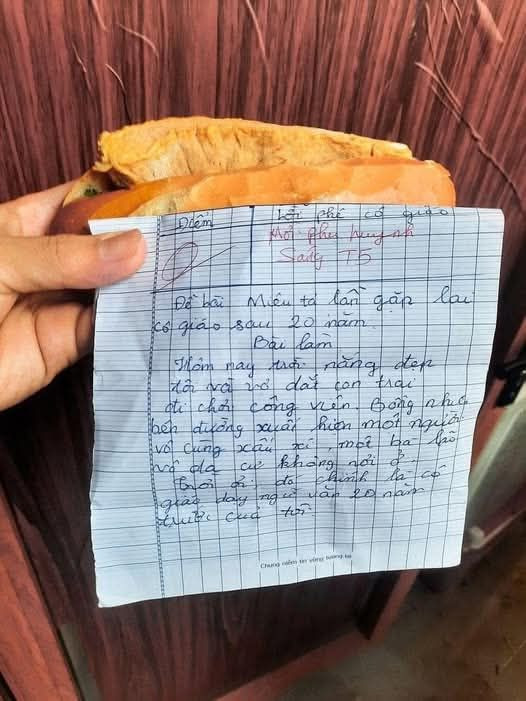 Điểm
Lời phê cô giáo
Mời phụ huynh
Sáng T5
Đề bài Miêu tả lần gặp lại
cô giáo sau 20 năm.
Bài làm
Hôm nay trời nắng đẹp
tôi và vợ dắt con trai
đi chơi công viên. Bỗng nhiên
bên đường xuất hiện một người
vô cùng xấu xí, một bà lão
vô gia cư không nơi ở.
ôi đó chính là cô
giáo dạy ngữ văn 20 năm
trước của tôi
Chung niềm tin vững tương lai